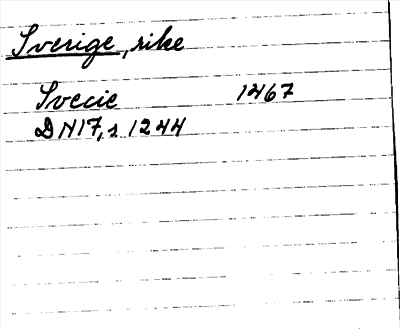 Sverige, rike
Svecie 1467
DN17, s 1244